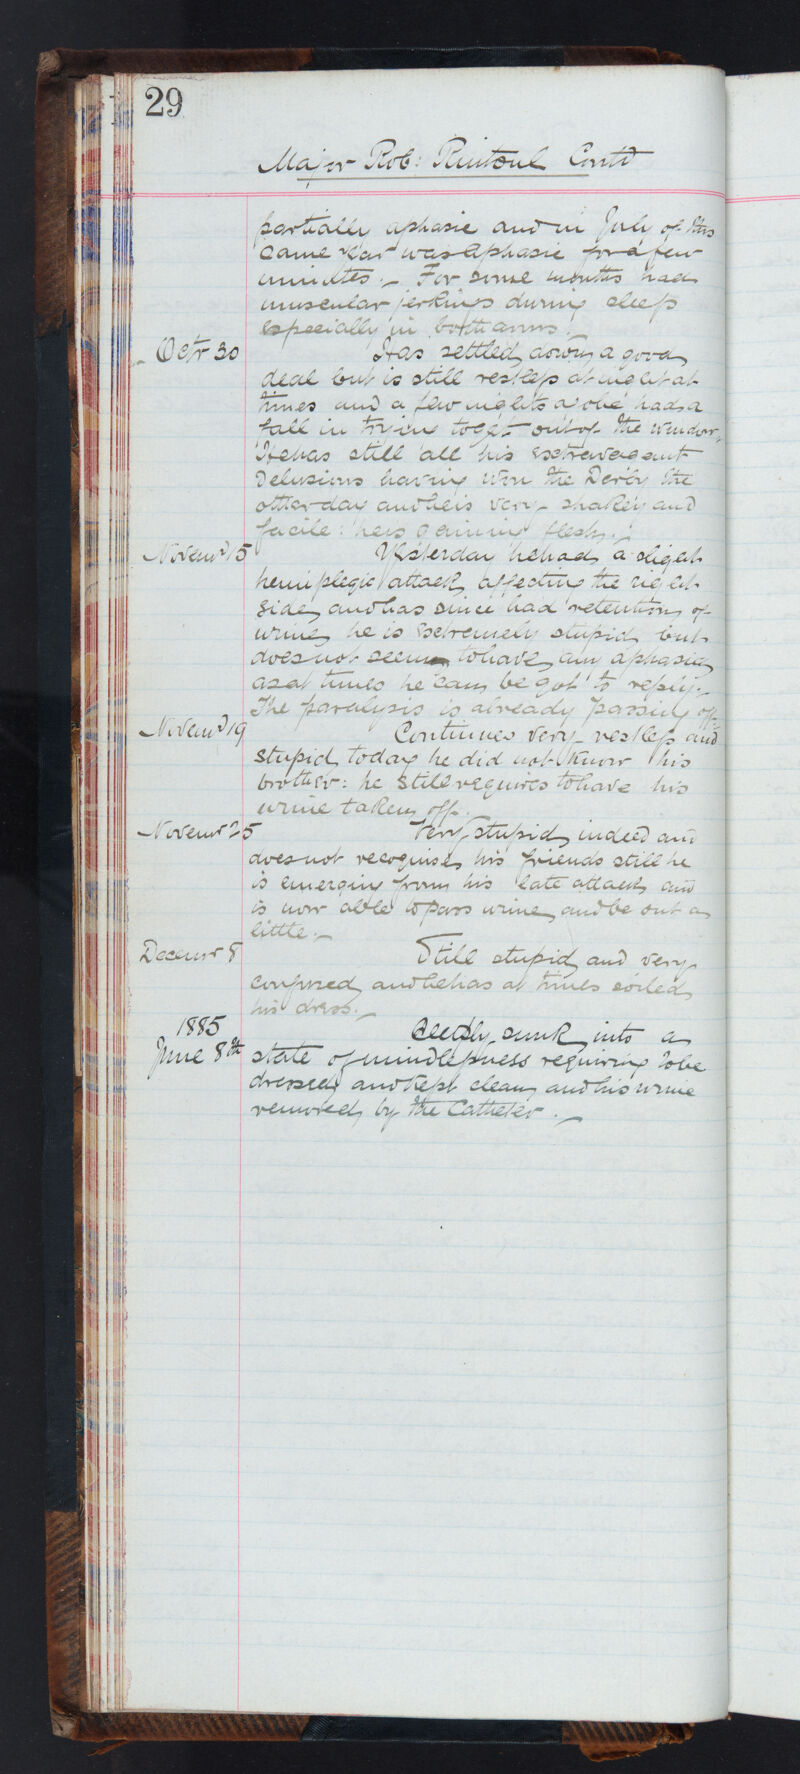 29
Major Rob: Rintoul Contd
partially aphasic and in July of this
same year was aphasic for a few
minutes. – For some months had
muscular jerkings during sleep
especially in both arms. –
Octr 30 Has settled down a good
deal but is still restless at night at
times and a few nights ago he had a
fall in trying to get out of the window.
He has still all his extravagant
Delusions having won the Derby the
other day and he is very shakey and
facile: he is gaining flesh. –
Novemr 15 Yesterday he had a slight
hemiplegic attack affecting the right
side and has since had retention of
urine, he is extremely stupid but
does not seem to have any aphasia
as at times he can be got to reply. –
The paralysis is already passing off. –
Novemr 19 Continues very restless and
stupid, today he did not know his
brother: he still requires to have his
urine taken off.
Novemr 25 Very stupid indeed and
does not recognise his friends still he
is emerging from his late attack and
is now able to pass urine and be out a
little. –
Decemr 8 Still stupid and very
confused and he has at times soiled
his dress. –
1885
June 8th Deeply sunk into a
state of mindlessness requiring to be
dressed and kept clean and his urine
removed by the Catheter. –